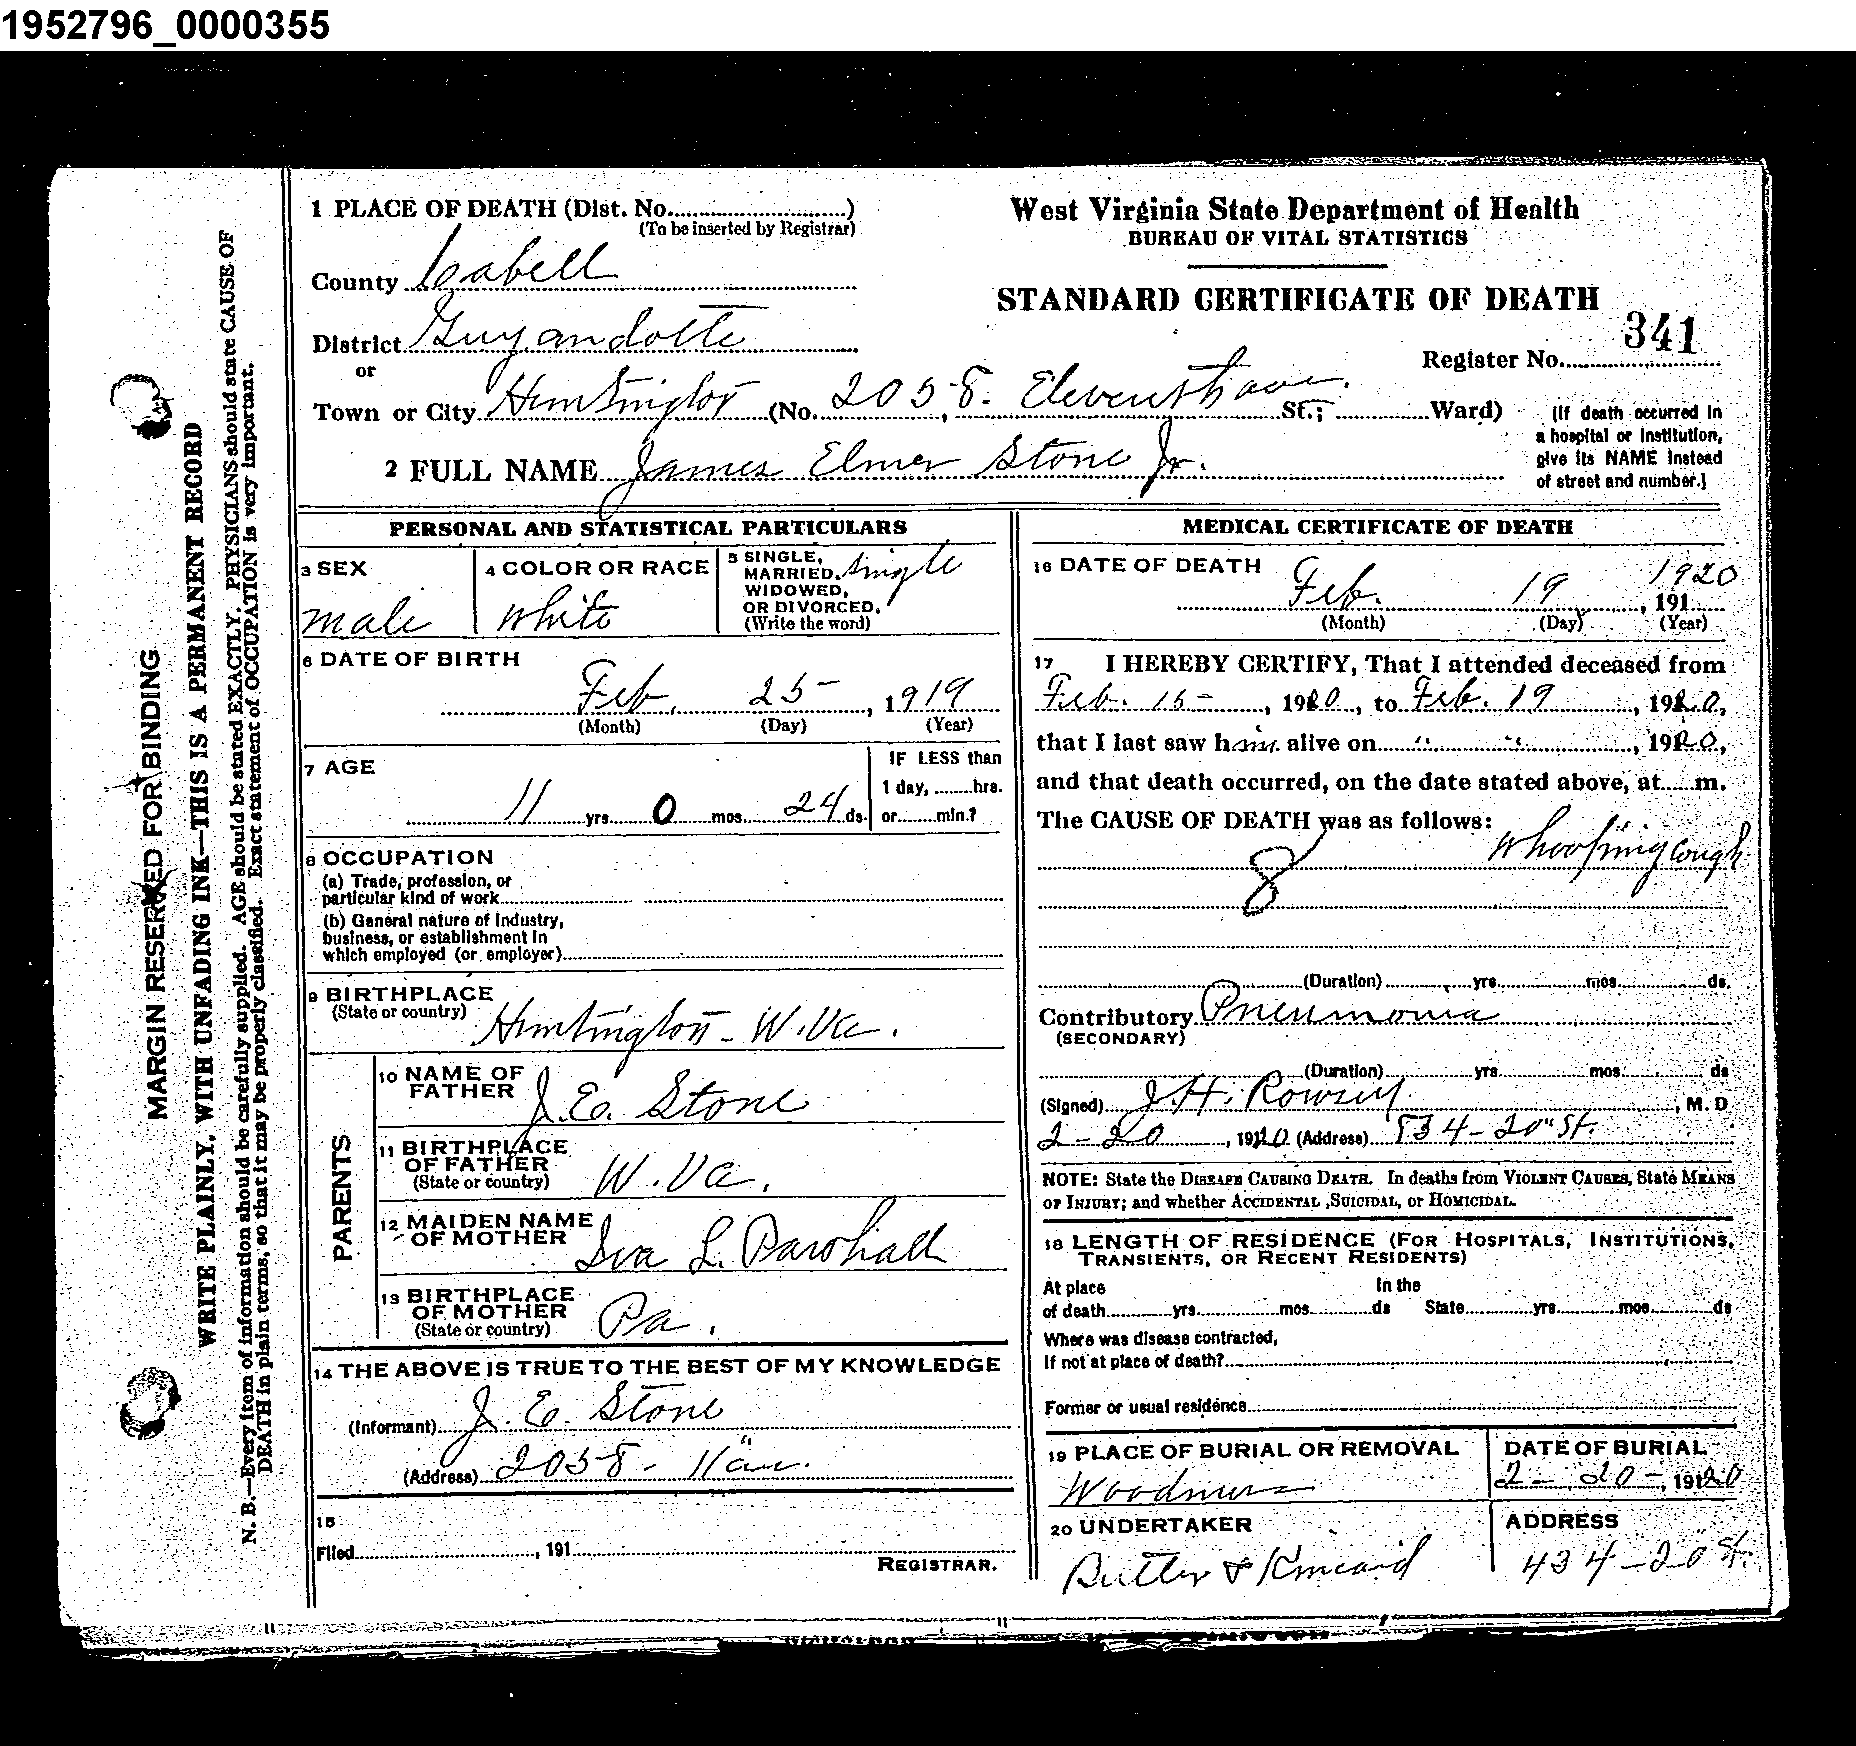 1952796_0000355
1 PLACE OF DEATH (Dist. No. )
(To be inserted by Registrar)
County Cabell
District Guyandotte
or
Town or City Huntington (No. 2058. Eleventh ave. St.; Ward)
2 FULL NAME James Elmer Stone Jr.
West Virginia State Department of Health
BUREAU OF VITAL STATISTICS
STANDARD CERTIFICATE OF DEATH
Register No. 341
(If death occurred in
a hospital or institution,
give its NAME instead
of street and number.)
PERSONAL AND STATISTICAL PARTICULARS
3 SEX
male
4 COLOR OR RACE
White
5 SINGLE,
MARRIED,
WIDOWED,
OR DIVORCED,
(Write the word)
Single
6 DATE OF BIRTH
Feb. 25 , 1919
(Month) (Day) (Year)
7 AGE
11 yrs. 0 mos. 24 ds.
IF LESS than
1 day, hrs.
or min.?
8 OCCUPATION
(a) Trade, profession, or
particular kind of work
(b) General nature of industry,
business, or establishment in
which employed (or employer)
9 BIRTHPLACE
(State or country) Huntington - W. Va.
PARENTS
10 NAME OF
FATHER J. E. Stone
11 BIRTHPLACE
OF FATHER
(State or country) W. Va.
12 MAIDEN NAME
OF MOTHER Iva L. Parshall
13 BIRTHPLACE
OF MOTHER
(State or country) Pa.
14 THE ABOVE IS TRUE TO THE BEST OF MY KNOWLEDGE
(Informant) J. E. Stone
(Address) 2058 - 11" av.
15
Filed , 191
REGISTRAR.
MEDICAL CERTIFICATE OF DEATH
16 DATE OF DEATH
Feb. 19 , 191 1920
(Month) (Day) (Year)
17 I HEREBY CERTIFY, That I attended deceased from
Feb. 15 - , 1920, to Feb. 19 , 1920,
that I last saw him alive on " " , 1920,
and that death occurred, on the date stated above, at m.
The CAUSE OF DEATH was as follows:
Whooping Cough
8
(Duration) yrs. mos. ds.
Contributory Pneumonia
(SECONDARY)
(Duration) yrs. mos. ds
(Signed) J. H. Rowsey , M. D
2-20 , 1920 (Address) 834-20" St.
NOTE: State the DISEASE CAUSING DEATH. In deaths from VIOLENT CAUSES, State MEANS
OF INJURY; and whether ACCIDENTAL ,SUICIDAL, or HOMICIDAL.
18 LENGTH OF RESIDENCE (FOR HOSPITALS, INSTITUTIONS,
TRANSIENTS, OR RECENT RESIDENTS)
At place In the
of death yrs. mos. ds State yrs. mos. ds
Where was disease contracted,
If not at place of death?
Former or usual residence
19 PLACE OF BURIAL OR REMOVAL
Woodmere
DATE OF BURIAL
2 - 20 -, 1920
20 UNDERTAKER
Butler & Kincaid
ADDRESS
434-20 St.
MARGIN RESERVED FOR BINDING
WRITE PLAINLY, WITH UNFADING INK—THIS IS A PERMANENT RECORD
N. B.—Every item of information should be carefully supplied. AGE should be stated EXACTLY. PHYSICIANS should state CAUSE OF
DEATH in plain terms, so that it may be properly classified. Exact statement of OCCUPATION is very important.